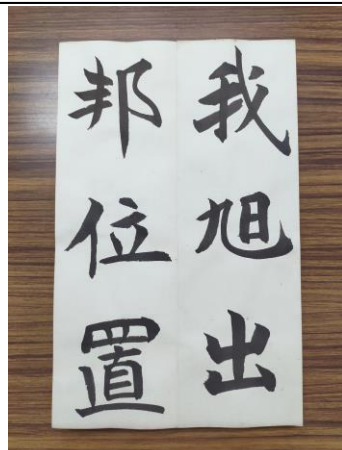 我旭出
邦位置